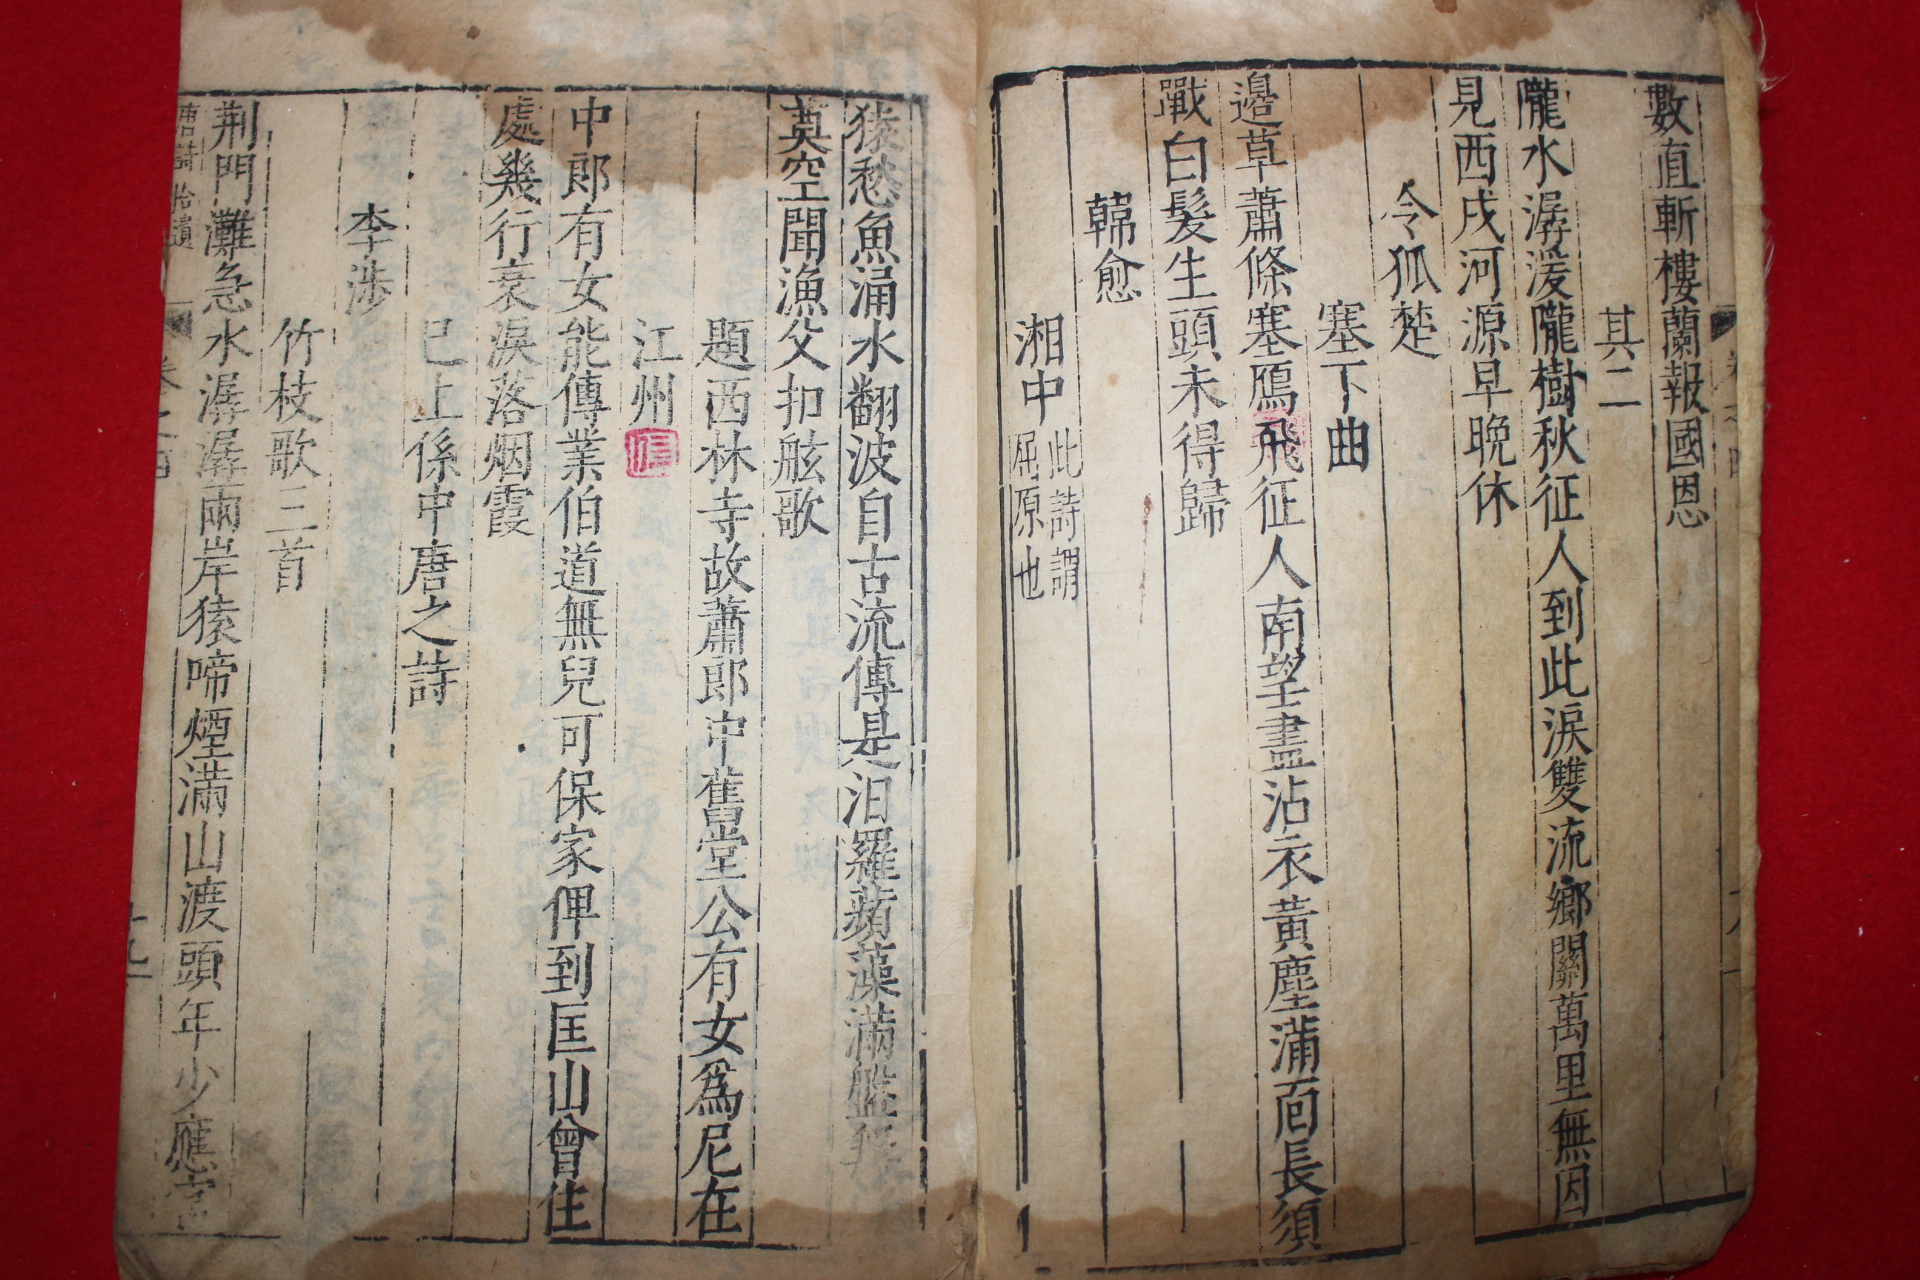 數直斬樓蘭報國恩
其二
隴水潺湲隴樹秋征人到此淚雙流鄉關萬里無因
見西戍河源早晚休
令狐楚
塞下曲
邊草蕭條塞鴈飛征人南望盡沾衣黃塵滿面長須
戰白髮生頭未得歸
韓愈
湘中此詩謂屈原也
猿愁魚涌水翻波自古流傳是汨羅蘋藻滿盤無
奠空聞漁父扣舷歌
題西林寺故蕭郎中舊堂公有女爲尼在
江州
中郎有女能傳業伯道無兒可保家俾到匡山曾住
處幾行衰淚落烟霞
已上係中唐之詩
李涉
竹枝歌三首
荆門灘急水潺潺兩岸猿啼煙滿山渡頭年少應官
唐詩拾遺 卷之四 十九